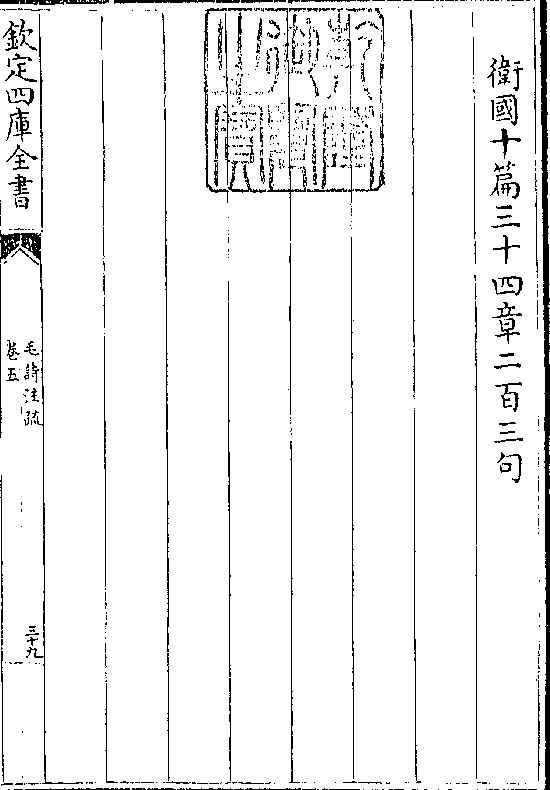 衛國十篇三十四章二百三句
欽定四庫全書
毛詩注疏
卷五
三十九